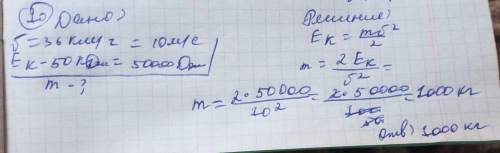 10 Дано:
υ = 36 км/ч = 10 м/с
Eк - 50 кДж = 50000 Дж
m - ?
Решение:
Eк = mυ²/2
m = 2Eк/υ² =
m = 2·50000/10² = 2·50000/100 = 1000 кг
Отв) 1000 кг